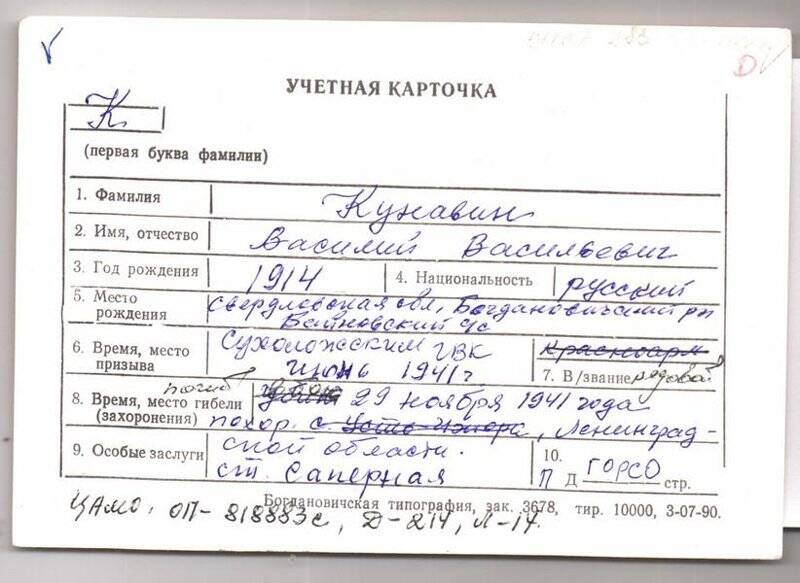 D
УЧЕТНАЯ КАРТОЧКА
К
(первая буква фамилии)
1. Фамилия Кунавин
2. Имя, отчество Василий Васильевич
3. Год рождения 1914 4. Национальность русский
5. Место рождения Свердловская обл, Богдановичский рн
Байновский с/с
6. Время, место призыва Сухоложским ГВК
июнь 1941 г
Красноарм
7. В/звание рядовой
погиб
8. Время, место гибели (захоронения) 29 ноября 1941 года
похор. с. Усть-Ижора, Ленинград-
ской области.
9. Особые заслуги ст. Саперная
10. П Д ГОРСО стр.
Богдановичская типография, зак. 3678, тир. 10000, 3-07-90.
ЦАМО: ОП-818883с, Д-214, Л-14.